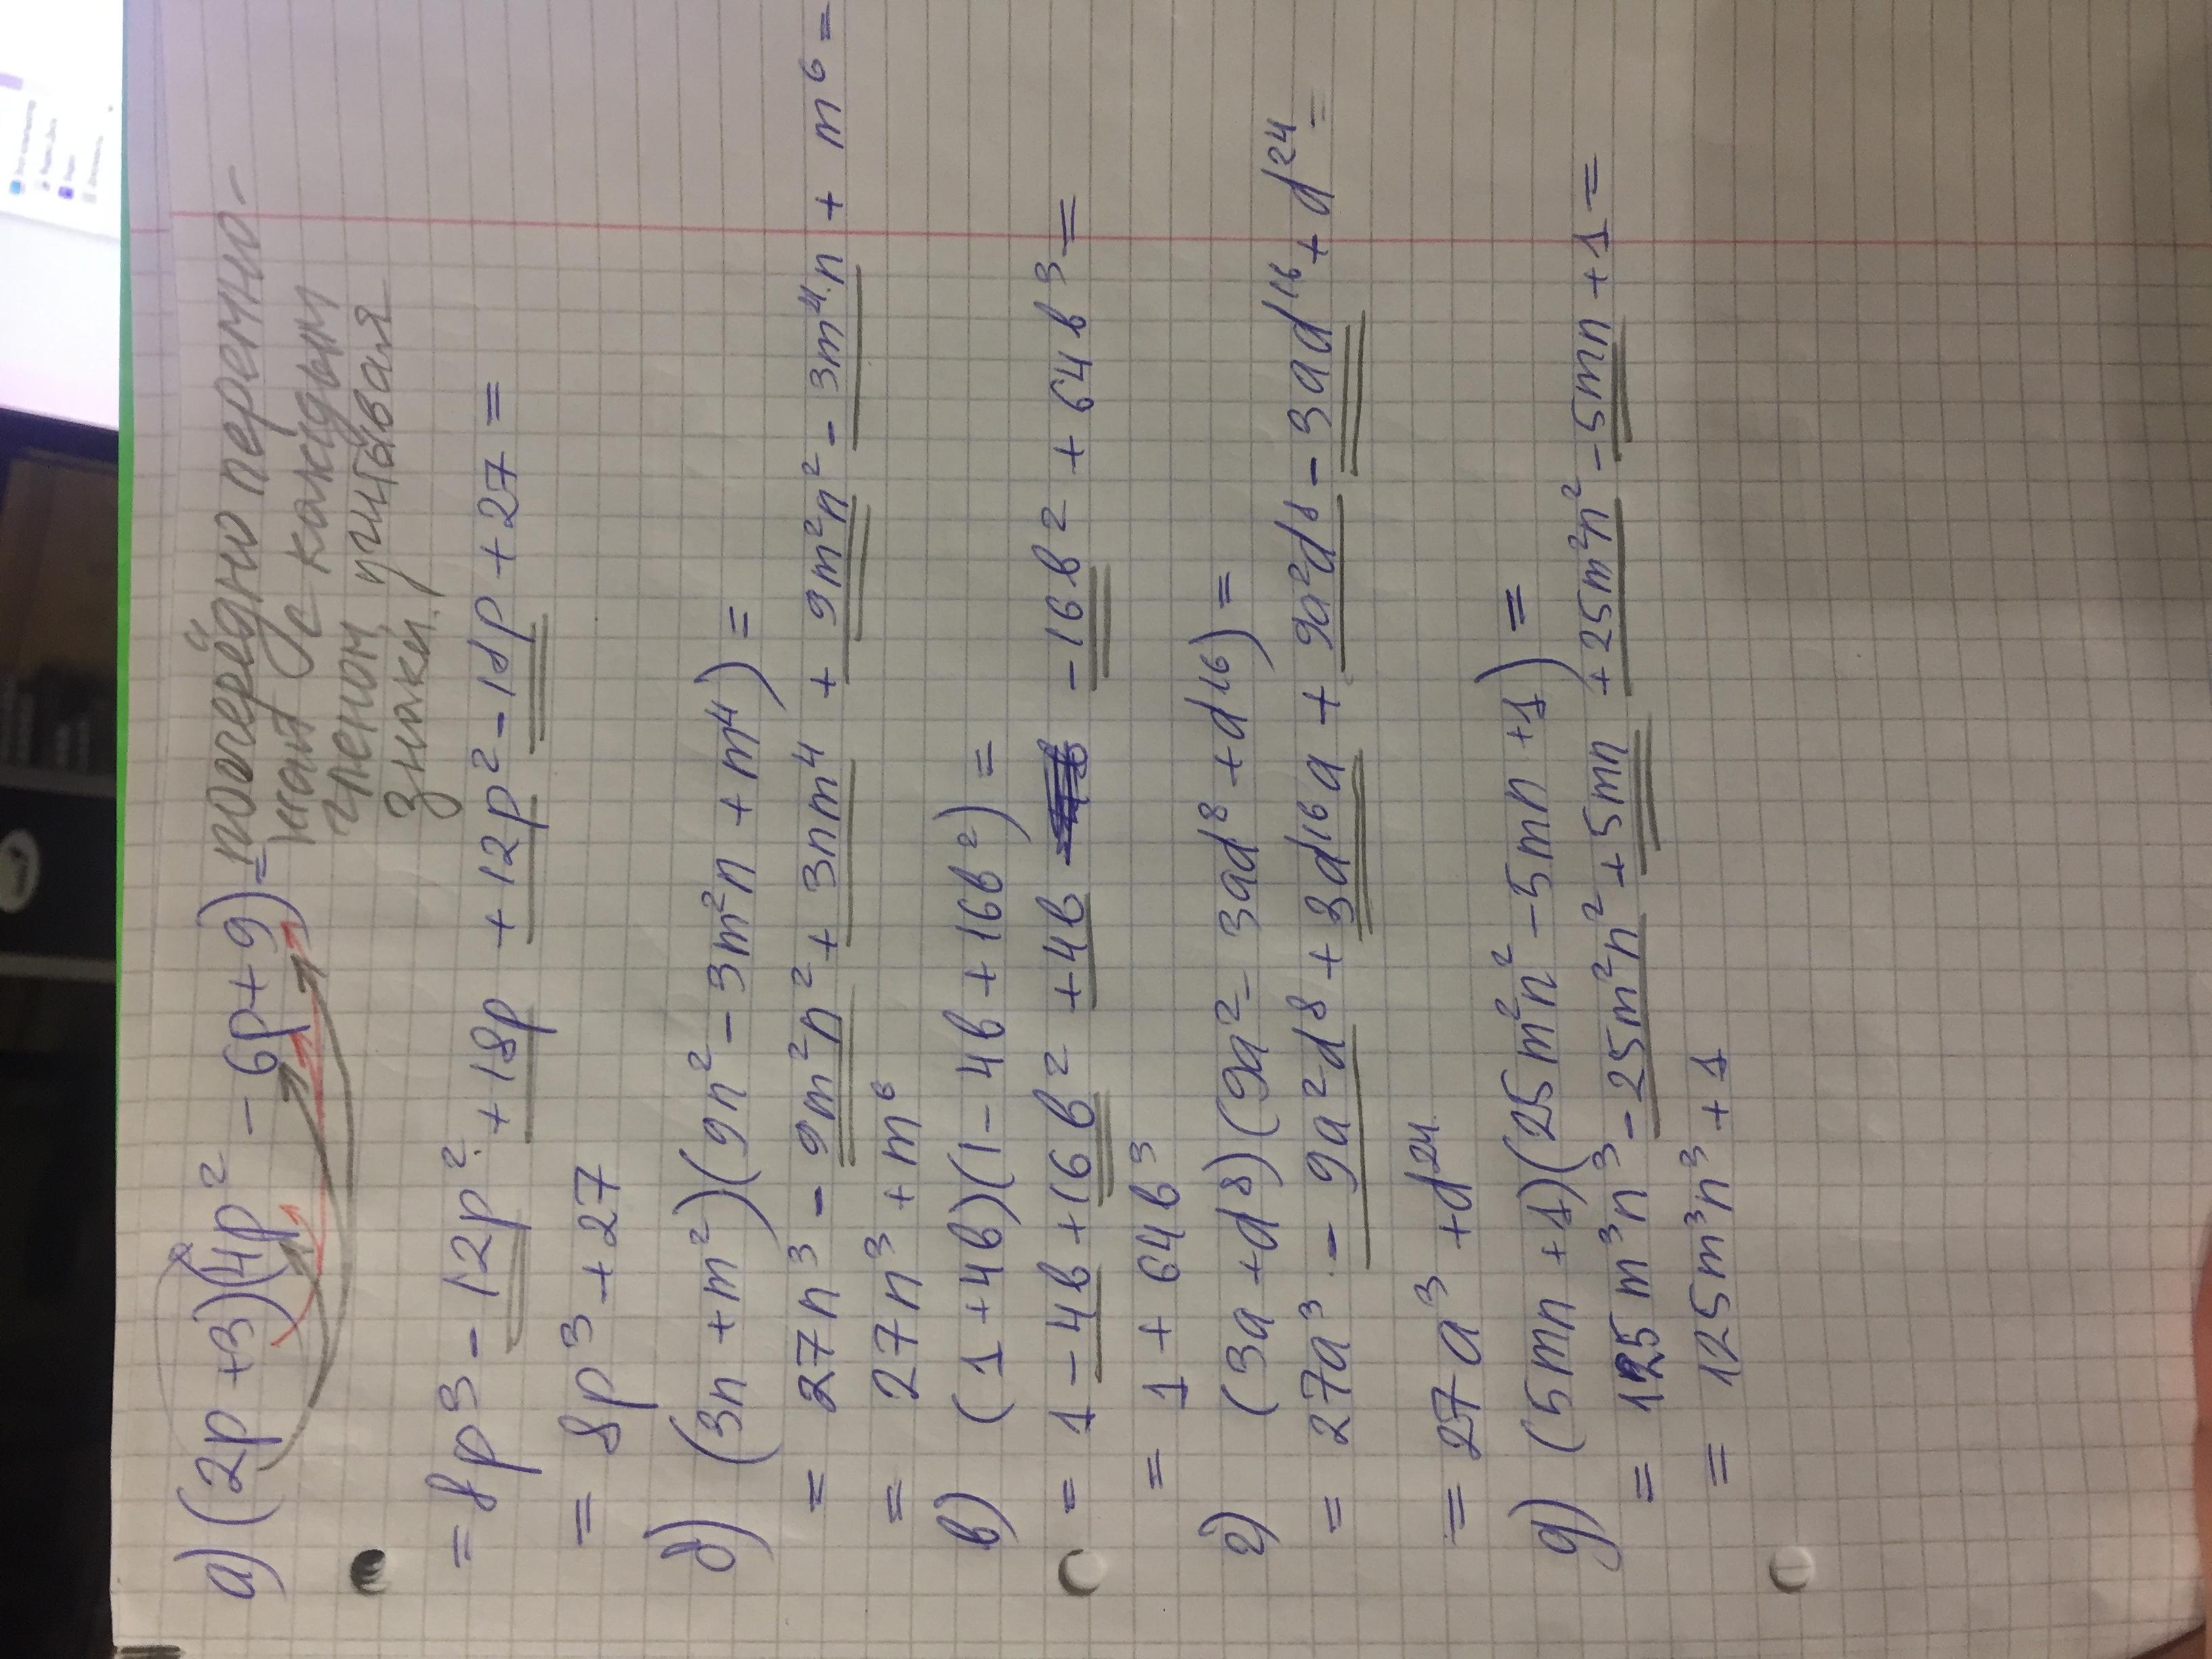 а) (2p +3)(4p² - 6p+9)= поочерёдно перемно-
жаю с каждым
членом, учитывая
знаки.
= 8p³ - 12p² + 18p + 12p² - 18p + 27 =
= 8p³ + 27
б) (3n + m²)(9n² - 3m²n + m⁴) =
= 27n³ - 9m²n² + 3nm⁴ + 9m²n² - 3m⁴·n + m⁶ =
= 27n³ + m⁶
в) (1 + 4в)(1 - 4в + 16в²) =
= 1 - 4в + 16в² + 4в - 16в² + 64в³ =
= 1 + 64в³
г) (3a + d⁸)(9a² - 3ad⁸ + d¹⁶) =
= 27a³ - 9a²d⁸ + 3d¹⁶a + 9a²d⁸ - 3ad¹⁶ + d²⁴ =
= 27a³ + d²⁴
д) (5mn + 1)(25m²n² - 5mn + 1) =
= 125m³n³ - 25m²n² + 5mn + 25m²n² - 5mn + 1 =
= 125m³n³ + 1